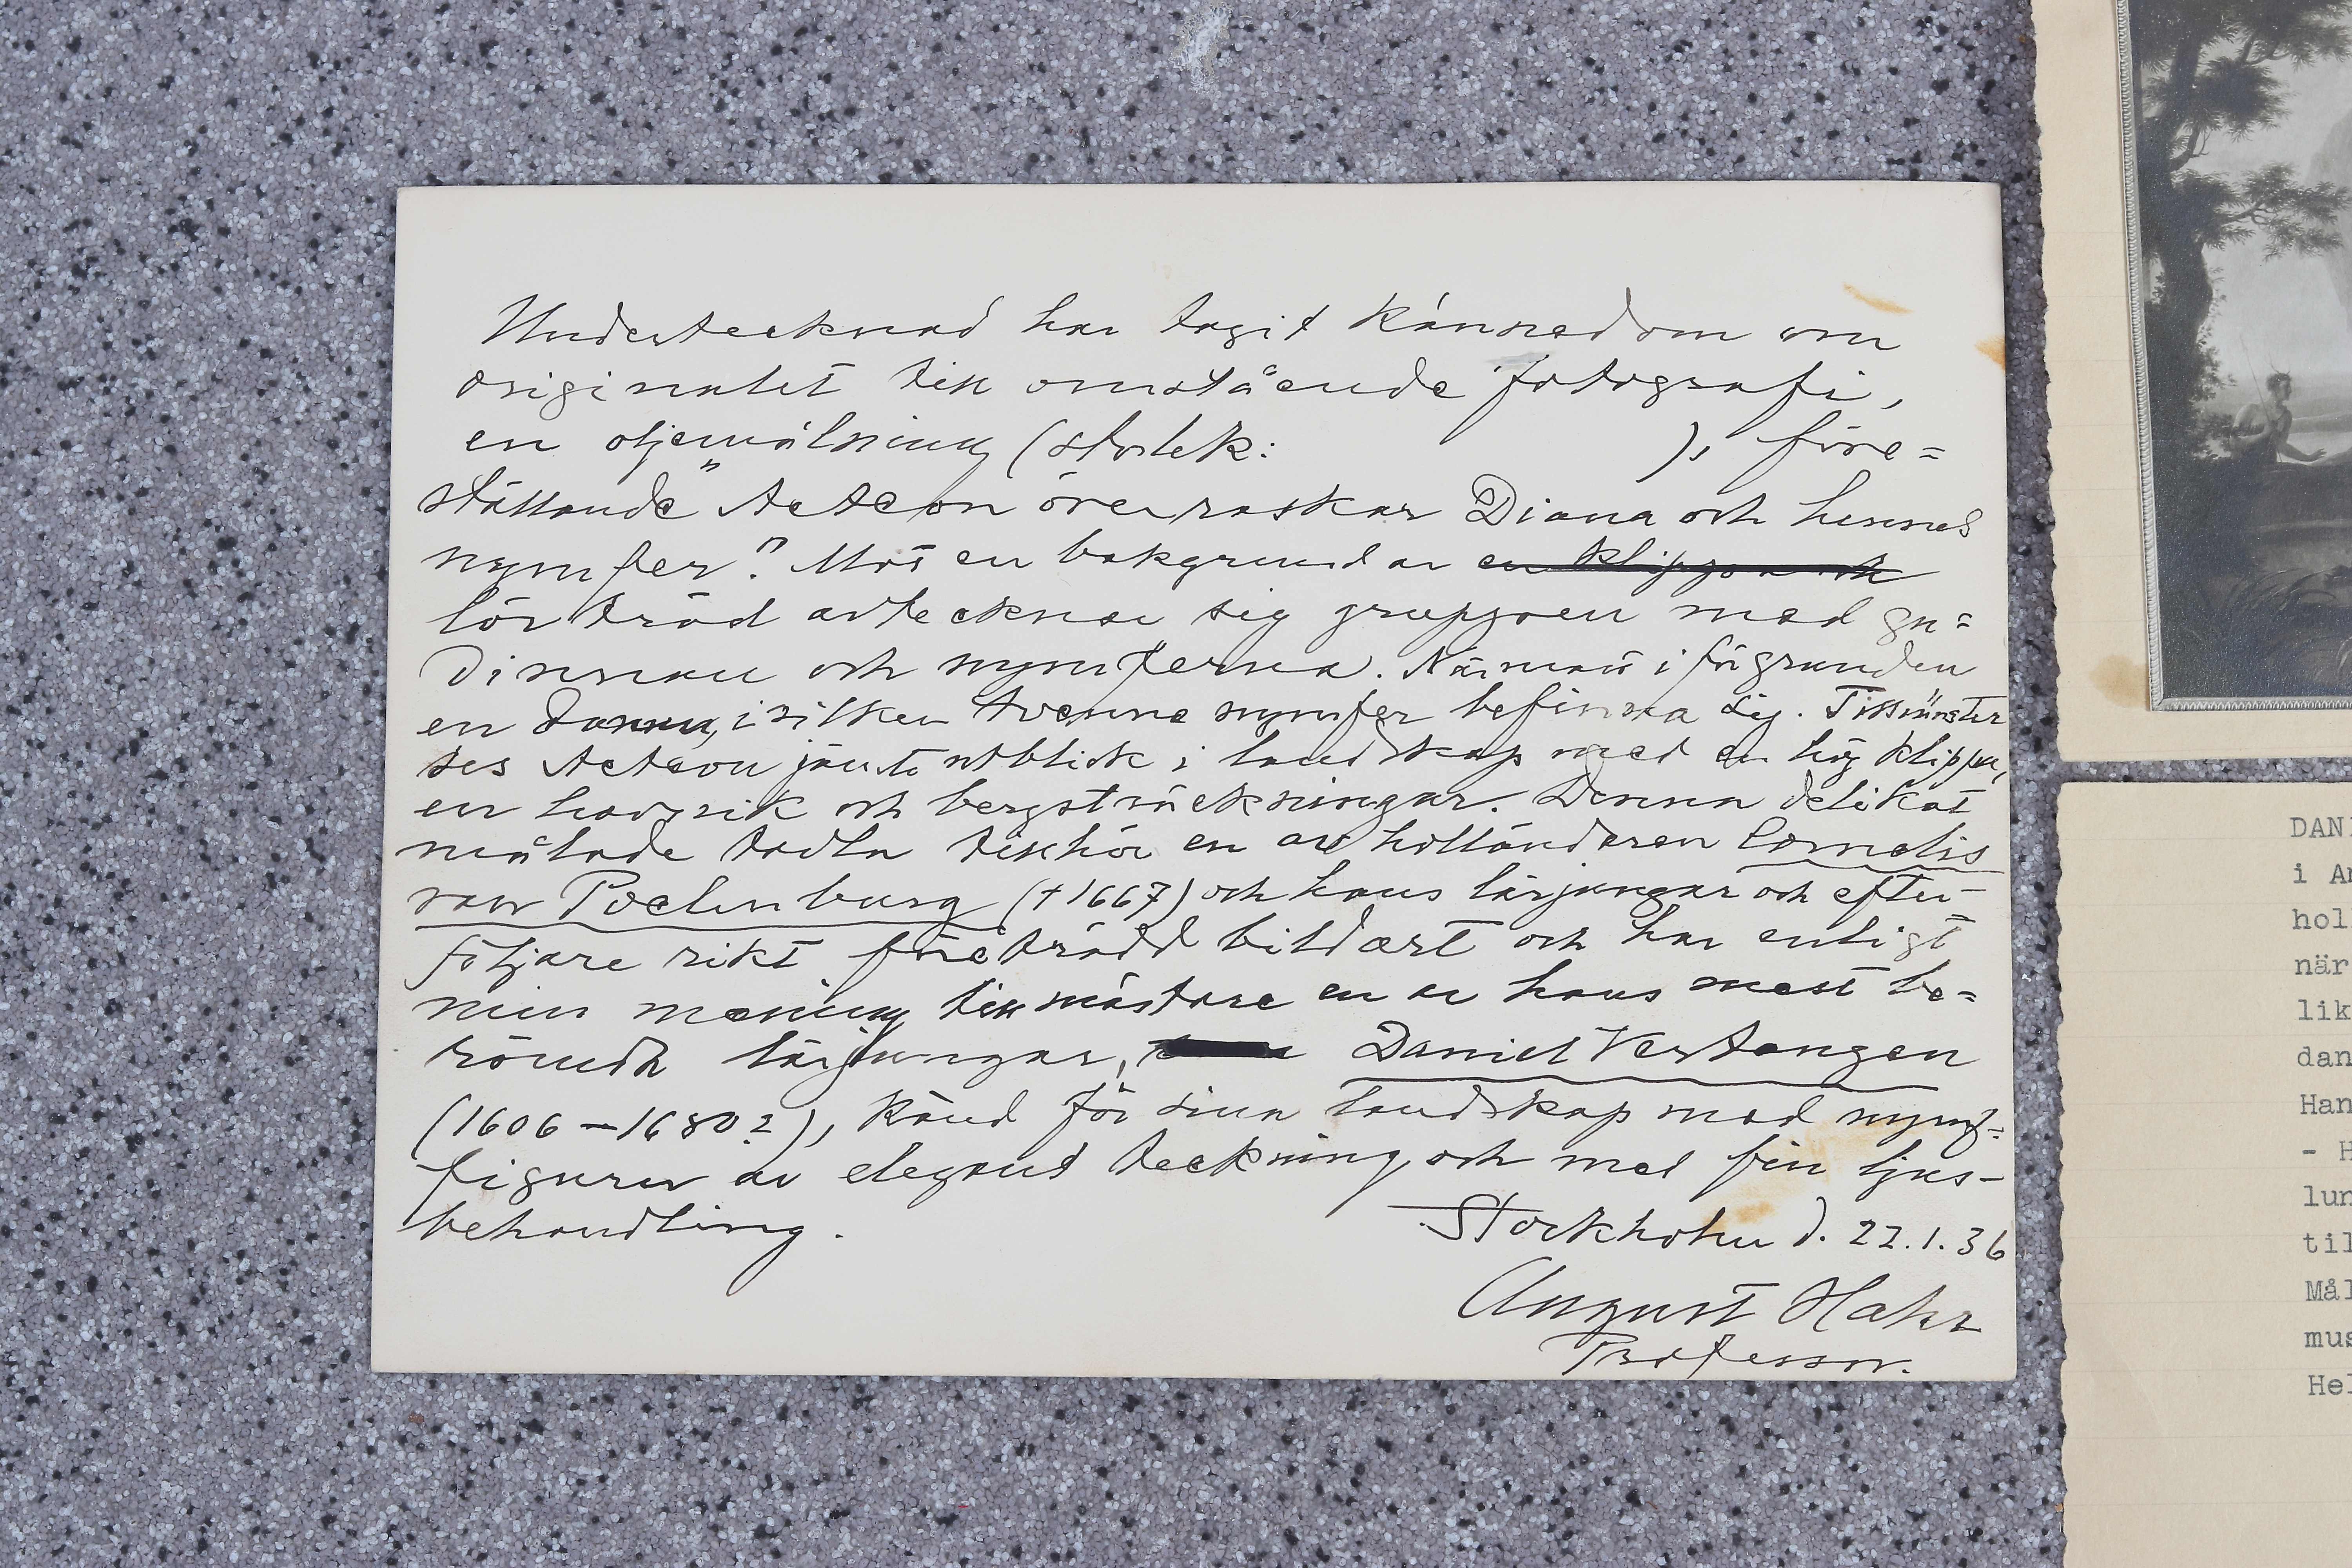 Undertecknad har tagit kännedom om
originalet till omstående fotografi,
en oljemålning (storlek: ), före=
ställande "Acteon överraskar Diana och hennes
nymfer". Mot en bakgrund av en klippa och
lövträd avtecknar sig gruppen med gu=
dinnan och nymferna. Närmast i förgrunden
en damm, i vilken tvenne nymfer befinna sig. Till vänster
ses Acteon jämte utblick i landskap med en hög klippa,
en havsvik och bergsträckningar. Denna delikat
målade tavla tillhör en av holländaren Cornelis
van Poelenburg († 1667) och hans lärjungar och efter-
följare rikt företrädd bildart och har enligt
min mening till mästare en av hans mest be=
römda lärjungar, Daniel Vertangen
(1606-1680?), känd för sina landskap med nymf=
figurer av elegant teckning och med fin ljus-
behandling.
Stockholm d. 22.1.36
August Hahr
Professor.
DAN
i
hol
när
lik
dan
Han
- H
lun
til
Mål
mus
Hel